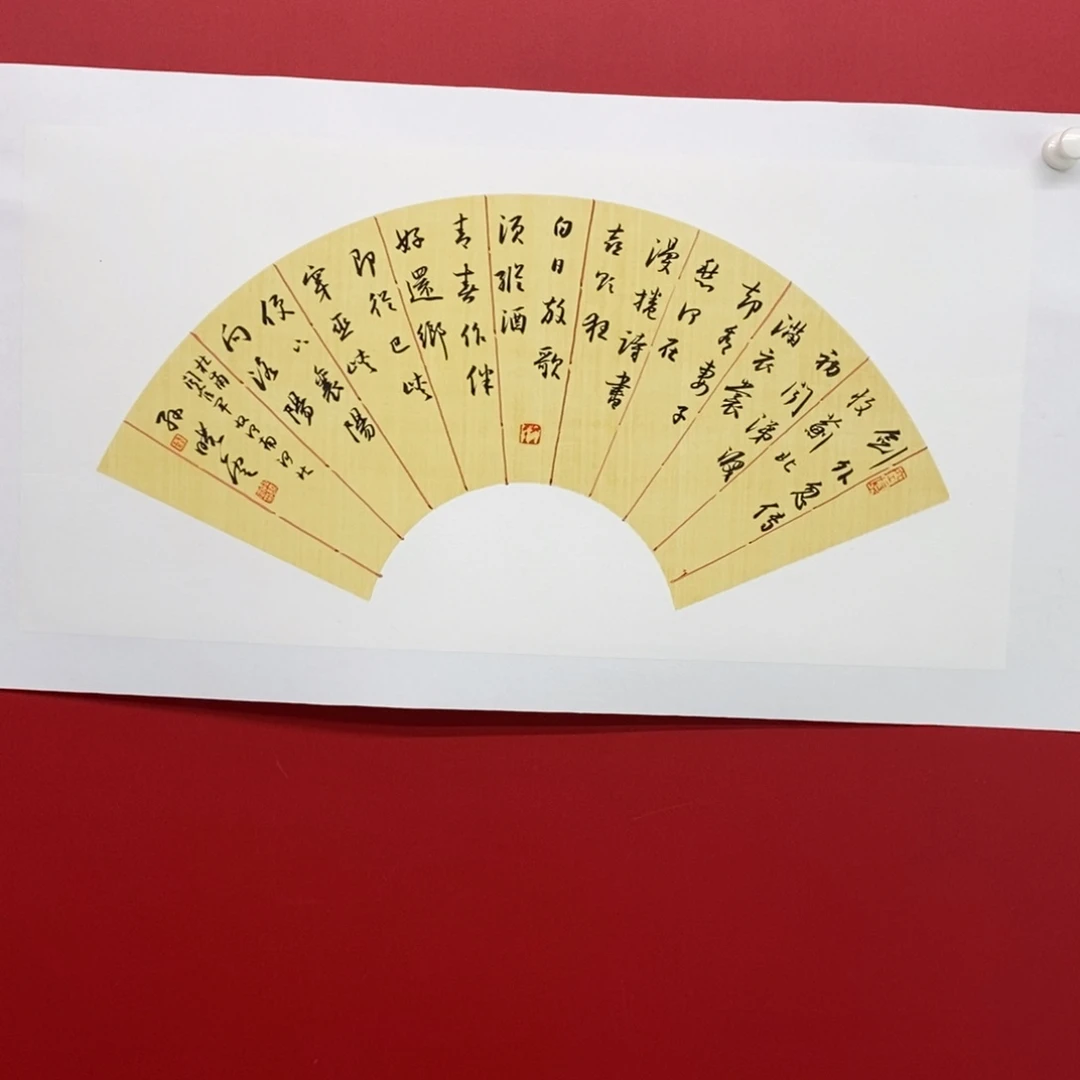 劍外忽传
收薊北
初聞涕淚
滿衣裳
却看妻子
愁何在
漫捲詩書
喜欲狂
白日放歌
須縱酒
青春作伴
好還鄉
即從巴峽
穿巫峽
便下襄陽
向洛陽
杜甫聞官軍收河南河北
孫曉雲